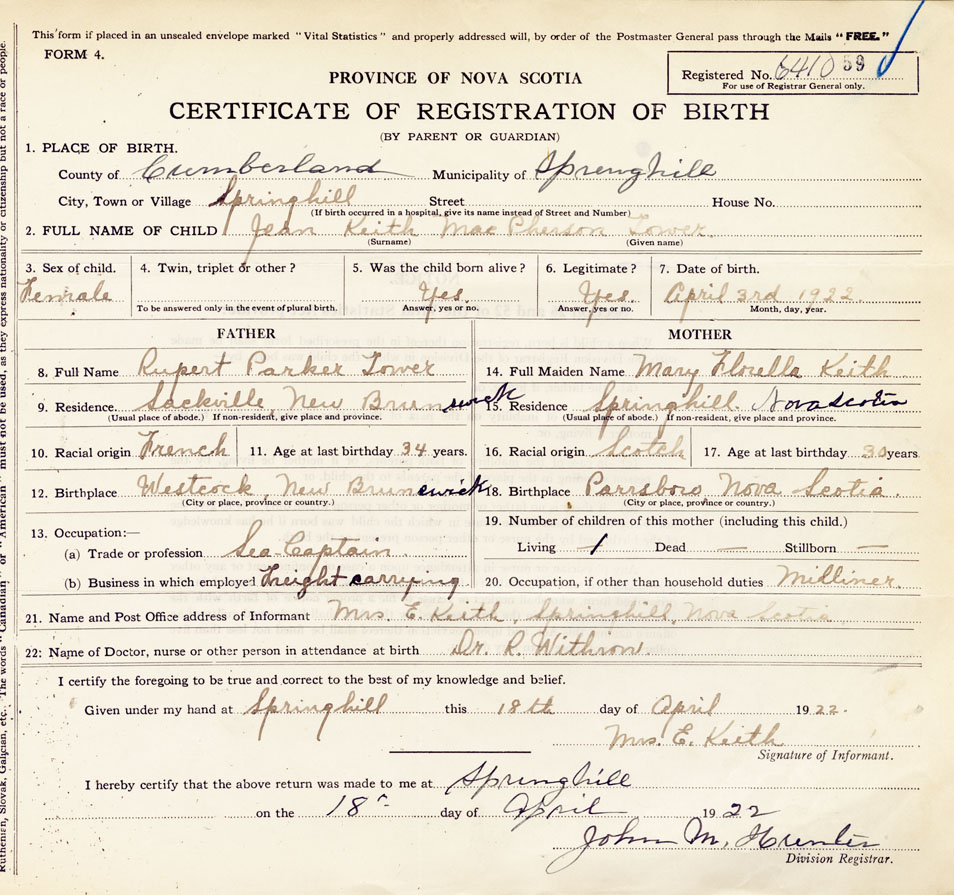 This form if placed in an unsealed envelope marked "Vital Statistics" and properly addressed will, by order of the Postmaster General pass through the Mails "FREE."
FORM 4.
Registered No. 6410 59
For use of Registrar General only.
PROVINCE OF NOVA SCOTIA
CERTIFICATE OF REGISTRATION OF BIRTH
(BY PARENT OR GUARDIAN)
1. PLACE OF BIRTH.
County of Cumberland Municipality of Springhill
City, Town or Village Springhill Street House No.
(If birth occurred in a hospital, give its name instead of Street and Number)
2. FULL NAME OF CHILD Jean Keith MacPherson Tower
(Surname) (Given name)
3. Sex of child. 4. Twin, triplet or other? 5. Was the child born alive? 6. Legitimate? 7. Date of birth.
Female Yes. Yes. April 3rd 1922
To be answered only in the event of plural birth. Answer, yes or no. Answer, yes or no. Month, day, year.
FATHER MOTHER
8. Full Name Rupert Parker Tower 14. Full Maiden Name Mary Florella Keith
9. Residence Sackville, New Brunswick 15. Residence Springhill Nova Scotia
(Usual place of abode.) If non-resident, give place and province. (Usual place of abode.) If non-resident, give place and province.
10. Racial origin French 11. Age at last birthday 34 years. 16. Racial origin Scotch 17. Age at last birthday 30 years.
12. Birthplace Westcock, New Brunswick 18. Birthplace Parrsboro Nova Scotia.
(City or place, province or country.) (City or place, province or country.)
13. Occupation:— 19. Number of children of this mother (including this child.)
(a) Trade or profession Sea-Captain Living 1 Dead — Stillborn —
(b) Business in which employed Freight carrying 20. Occupation, if other than household duties Milliner.
21. Name and Post Office address of Informant Mrs. E. Keith, Springhill, Nova Scotia
22: Name of Doctor, nurse or other person in attendance at birth Dr. R. Withrow.
I certify the foregoing to be true and correct to the best of my knowledge and belief.
Given under my hand at Springhill this 18th day of April 1922.
Mrs. E. Keith
Signature of Informant.
I hereby certify that the above return was made to me at Springhill
on the 18 day of April 1922
John M. Hunter
Division Registrar.
Ruthenian, Slovak, Galician, etc. The words "Canadian" or "American" must not be used, as they express nationality or citizenship but not a race or people.